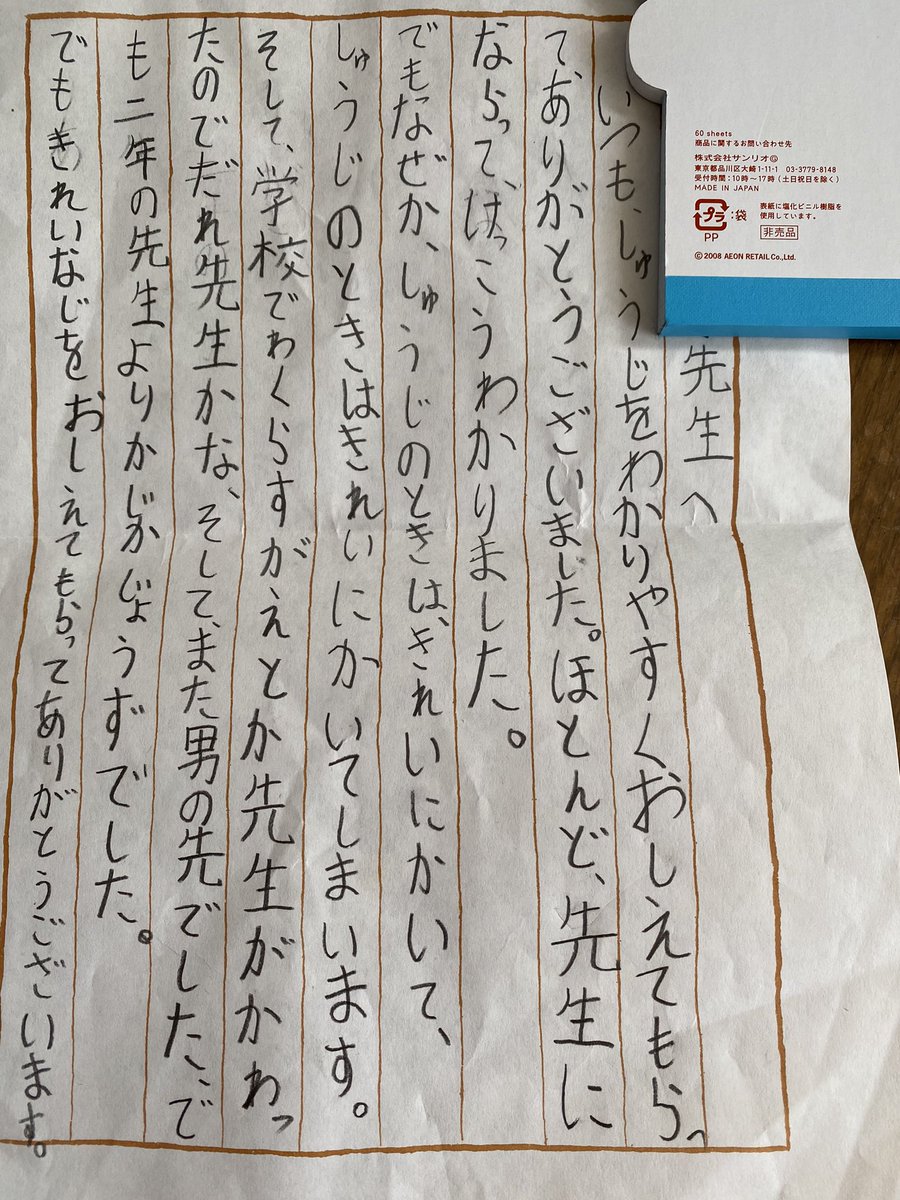 先生へ
いつも、しゅうじをわかりやすくおしえてもらっ
てありがとうございました。ほとんど、先生に
ならって、けっこうわかりました。
でもなぜか、しゅうじのときは、きれいにかいて、
しゅうじのときはきれいにかいてしまいます。
そして、学校でわくらすがえとか先生がかわっ
たのでだれ先生かな、そして、また男の先でした、で
も二年の先生よりかじがじょうずでした。
でもきれいなじをおしえてもらってありがとうございます。
60 sheets
商品に関するお問い合わせ先
株式会社サンリオ
東京都品川区大崎1-11-1 03-3779-8148
受付時間：10時～17時（土日祝日を除く）
MADE IN JAPAN
プラ：袋
PP
表紙に塩化ビニル樹脂を
使用しています。
非売品
© 2008 AEON RETAIL Co.,Ltd.